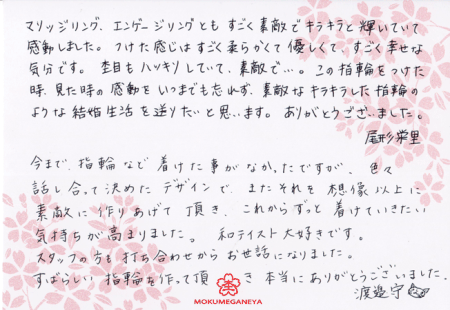 マリッジリング、エンゲージリングとも すごく素敵で キラキラと輝いていて
感動しました。つけた感じは すごく柔らかくて 優しくて、すごく幸せな
気分です。杢目も ハッキリしていて、素敵で…。この指輪をつけた
時、見た時の感動を いつまでも忘れず、素敵な キラキラした指輪の
ような 結婚生活を送りたいと思います。ありがとうございました。
尾形 栄里
今まで、指輪など 着けた事がなかったですが、色々
話し合って決めた デザインで、またそれを 想像以上に
素敵に作りあげて 頂き、これからずっと 着けていきたい
気持ちが 高まりました。和テイスト大好きです。
スタッフの方も 打ち合わせからお世話になりました。
すばらしい 指輪を作って頂き 本当にありがとうございました。
渡邉守
MOKUMEGANEYA